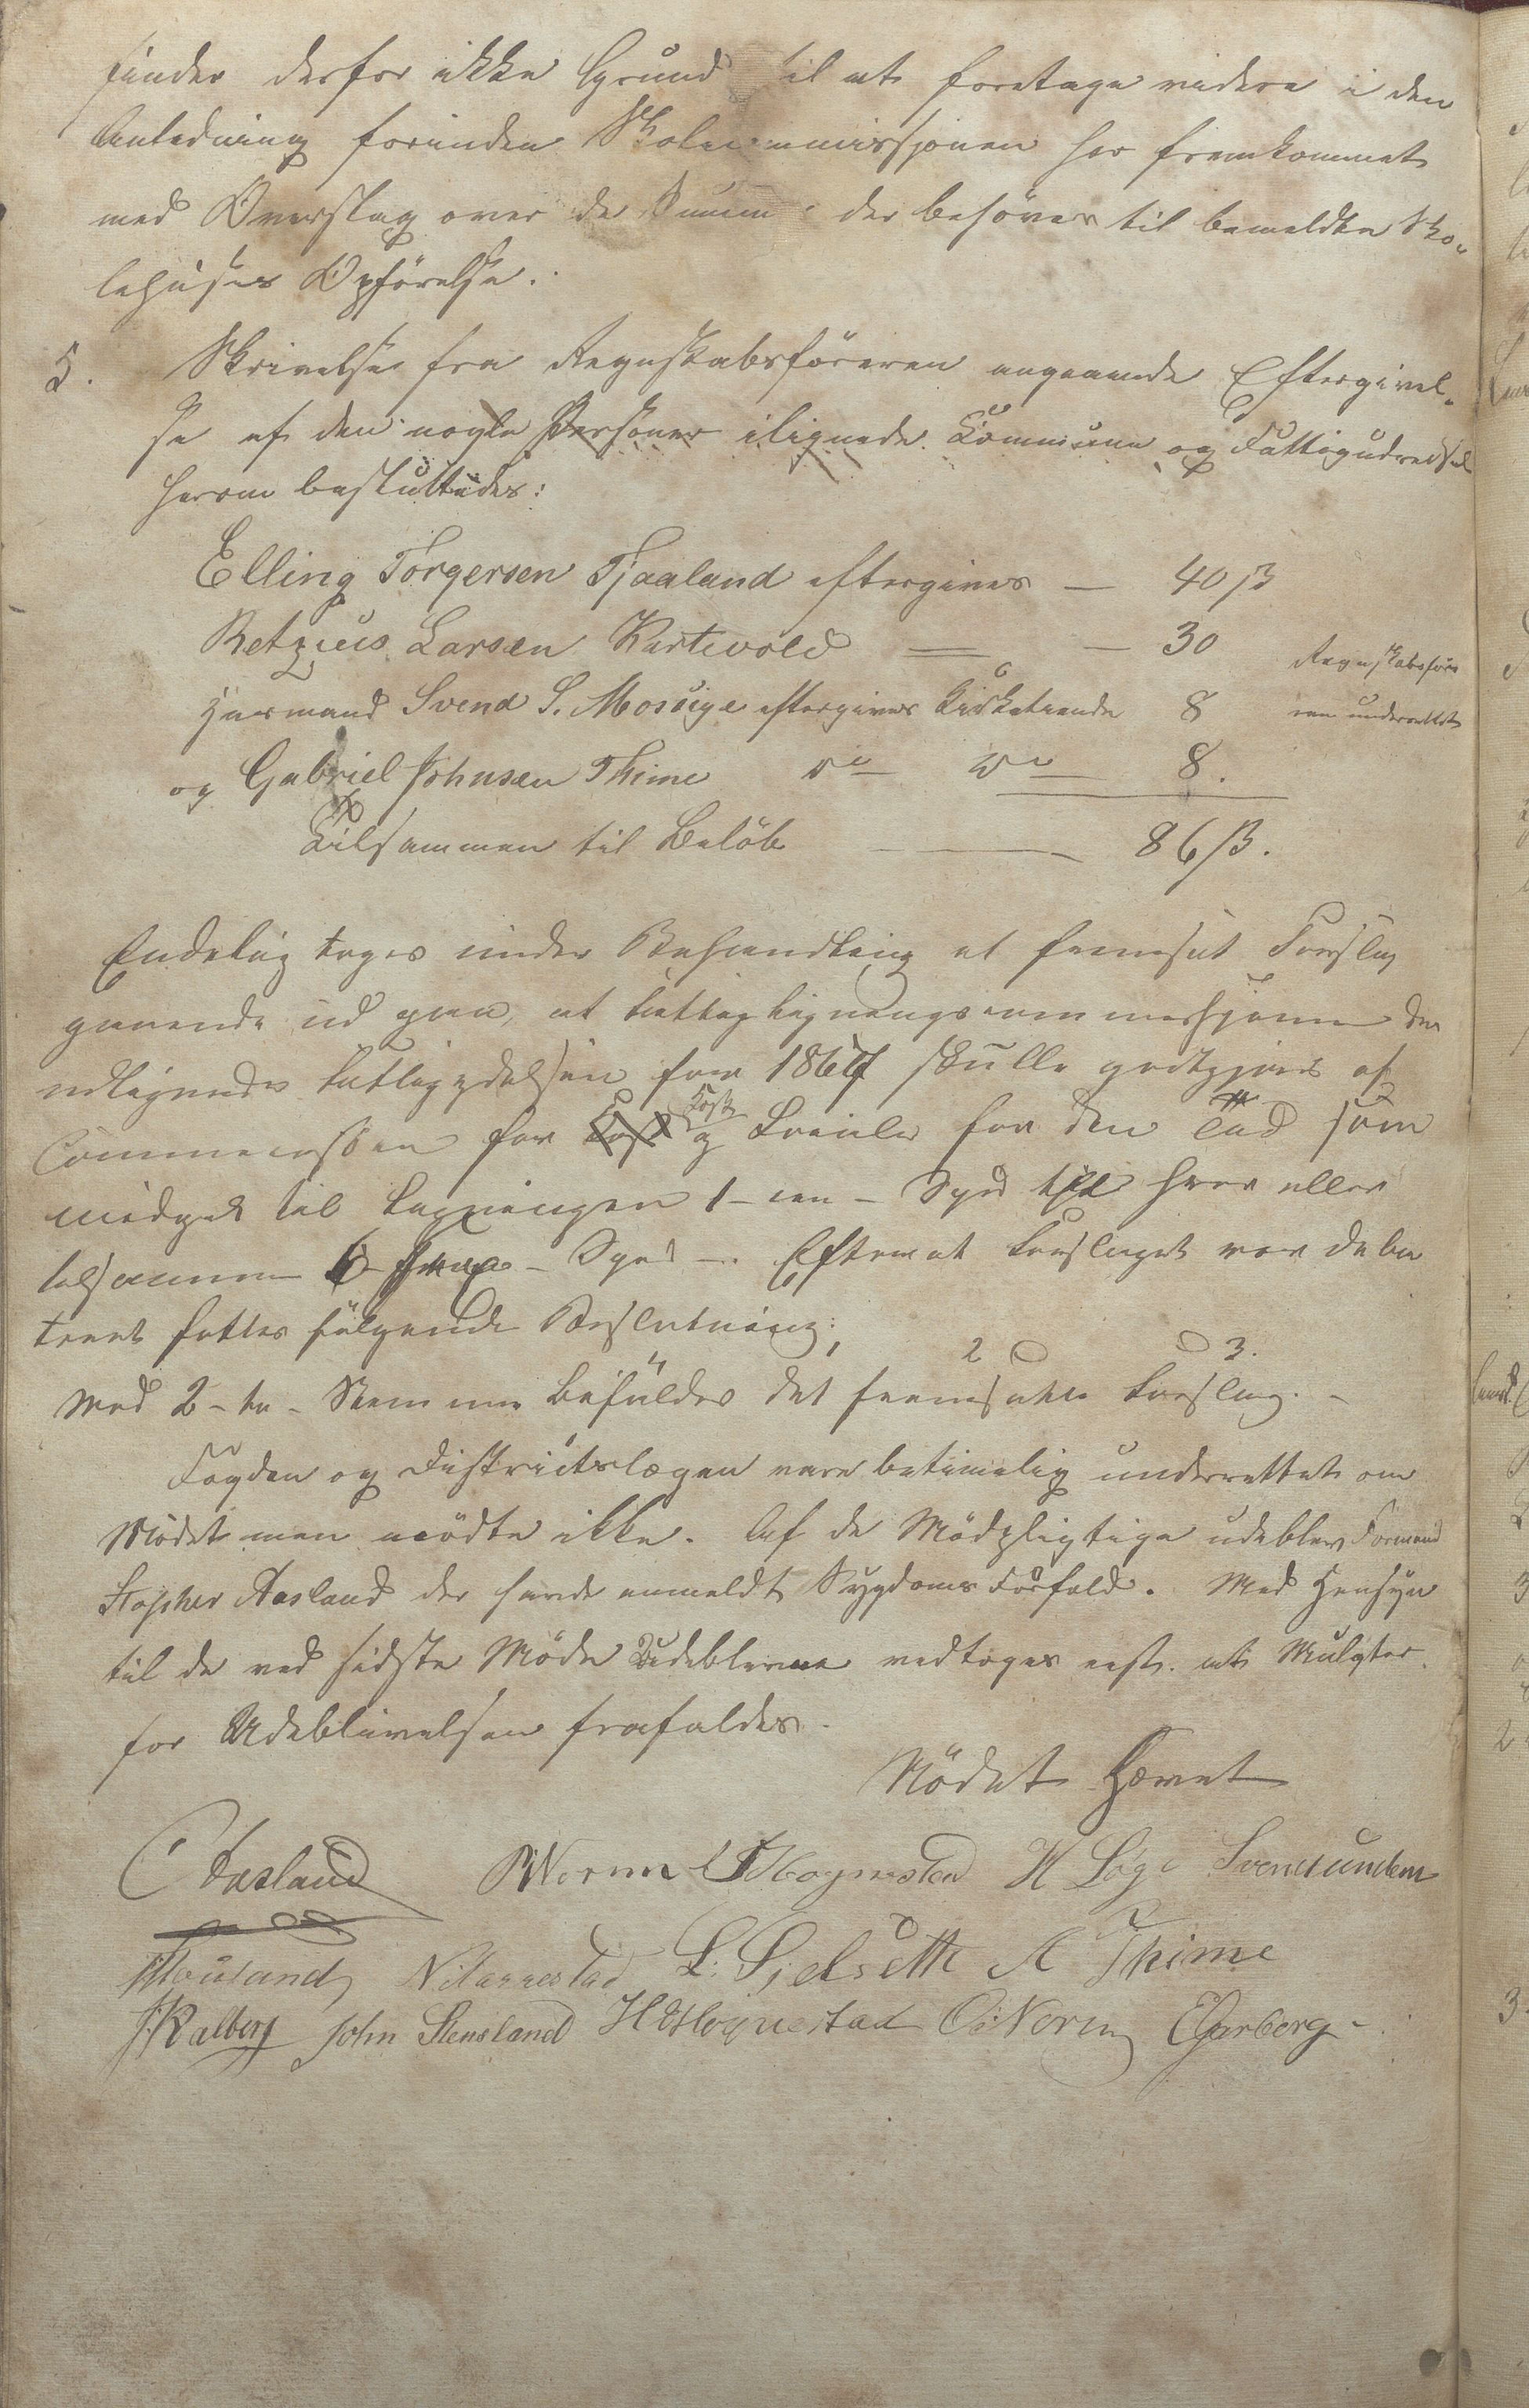 finder derfor ikke Grund til at foretage videre i den
Anledning forinden Skolecommissjonen har fremkommet
med Overslag over de Summe der behöves til bemeldte Sko-
lehuses Opförelse.
5. Skrivelse fra Regnskabsföreren angaaende Eftergivel-
se af den nogle Personer ilignede Kommune og Fattigudredsel
herom besluttedes:
Elling Torgersen Tjaaland eftergives — 40 ß
Retzius Larsen Hartivold = — 30
Regnskabsföre
Husmand Svend S. Mosvige eftergives Kirketiende 8
ren underrettet
og Gabriel Johnsen Thime do do 8.
Tilsammen til Belöb — 86 ß.
Endelig toges under Behandling et fremsat Forslag
gaaende ud paa, at Fattigligningscommissjonen der
udlignede Fattigydelsen for 1864 skulle godtgjöres af
Commcassen for Kost og for den Tid som
medgik til Ligningen 1 - en - Spd til hver eller
tilsammen 6 - Spd -. Efterat Forslaget var deba
teret fattes fölgende Beslutning;
2 3.
Med 2 - to - Stemmer bifaldes det fremsatte Forslag. -
Fogden og Districtslægen vare betimelig underrettet om
Mödet men mödte ikke. Af de Mödpligtige udeblev Formand
Stopher Aasland der havde anmeldt Sygdoms Forfald. Med Hensyn
til de ved sidste Möde Udeblevne vedtoges at Mulgter
for Udeblivelsen frafaldes.
Mödet Hævet
C Aasland Nerim Hognestad H Löge Svend Undem
Houland N Larrestad L: Sjelseth A Thime
J. Kalberg John Stensland H Hognestad O: Nerim E Garborg -